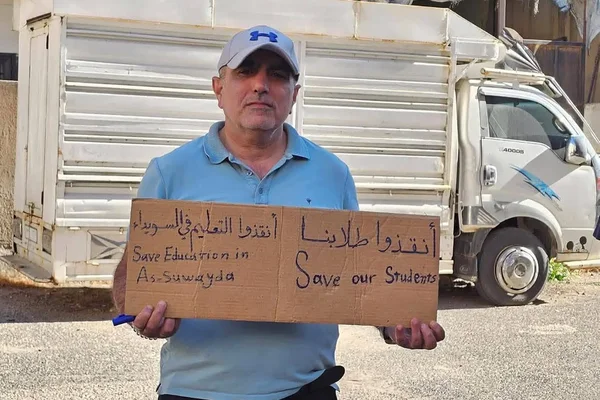 أنقذوا طلابنا
Save our Students
أنقذوا التعليم في السويداء
Save Education in
As-Suwayda
K4000S